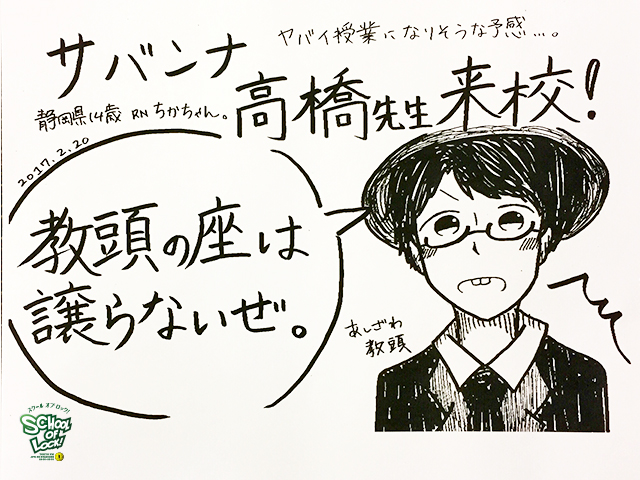 サバンナ
ヤバイ授業になりそうな予感…。
静岡県14歳 RN ちかちゃん。
高橋先生来校!
2017.2.20
教頭の座は
譲らないぜ。
あしざわ
教頭
スクール オブ ロック!
SCHOOL
OF
LOCK!